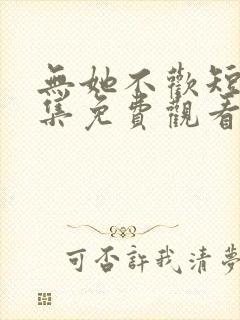 無她不歡短
集免費觀看
可否許我清夢